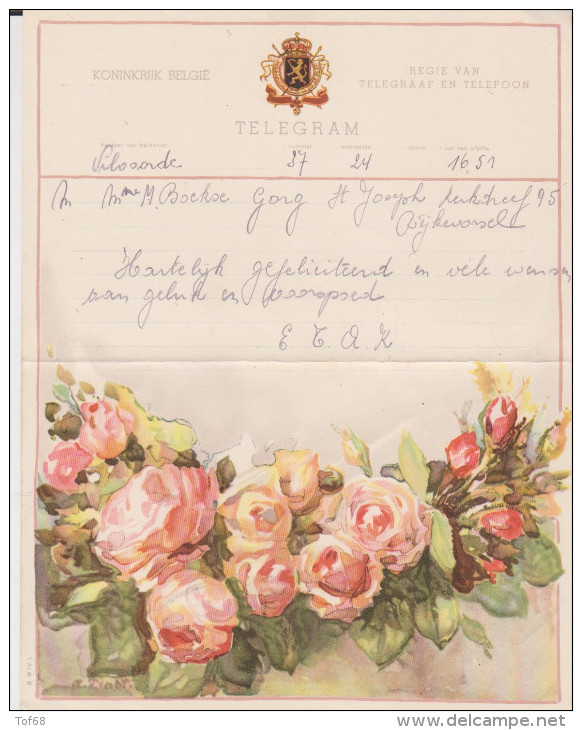 KONINKRIJK BELGIË
REGIE VAN
TELEGRAAF EN TELEFOON
TELEGRAM
Vilvoorde 37 24 16,51
M Mme H. Boekse Gorg St Joseph Kerkdreef 95
Rijkevorsel
Hartelijk gefeliciteerd en vele wensen
van geluk en voorspoed
E. T. A. K
Tof68
delcampe.net